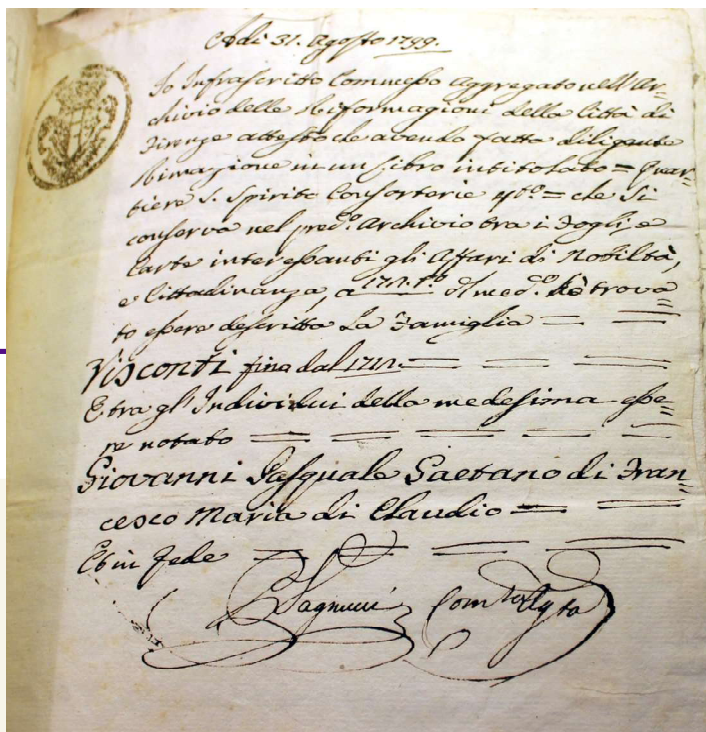 Adì 31. Agosto 1799.
Io Infrascritto Commesso Aggregato nell'Ar=
chivio delle Riformagioni della Città di
Firenze attesto che avendo fatta diligente
in un Libro intitolato = Quar=
tiere S. Spirito Consorterie = che si
conserva nel pred.º Archivio tra i Fogli, e
Carte interessanti gli Affari di Nobiltà,
e Cittadinanza, a trova=
to essere descritta La Famiglia =
Visconti fino dal
E tra gl'Individui della medesima esse=
re notato
Giovanni Pasquale Gaetano di Fran=
cesco Maria di Claudio =
Et in fede